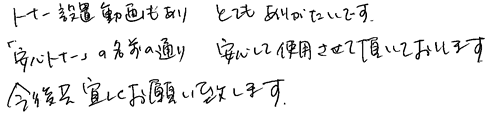 トナー設置動画もあり とてもありがたいです.
「安心トナー」の名前の通り 安心して使用させて頂いております
今後共宜しくお願い致します.